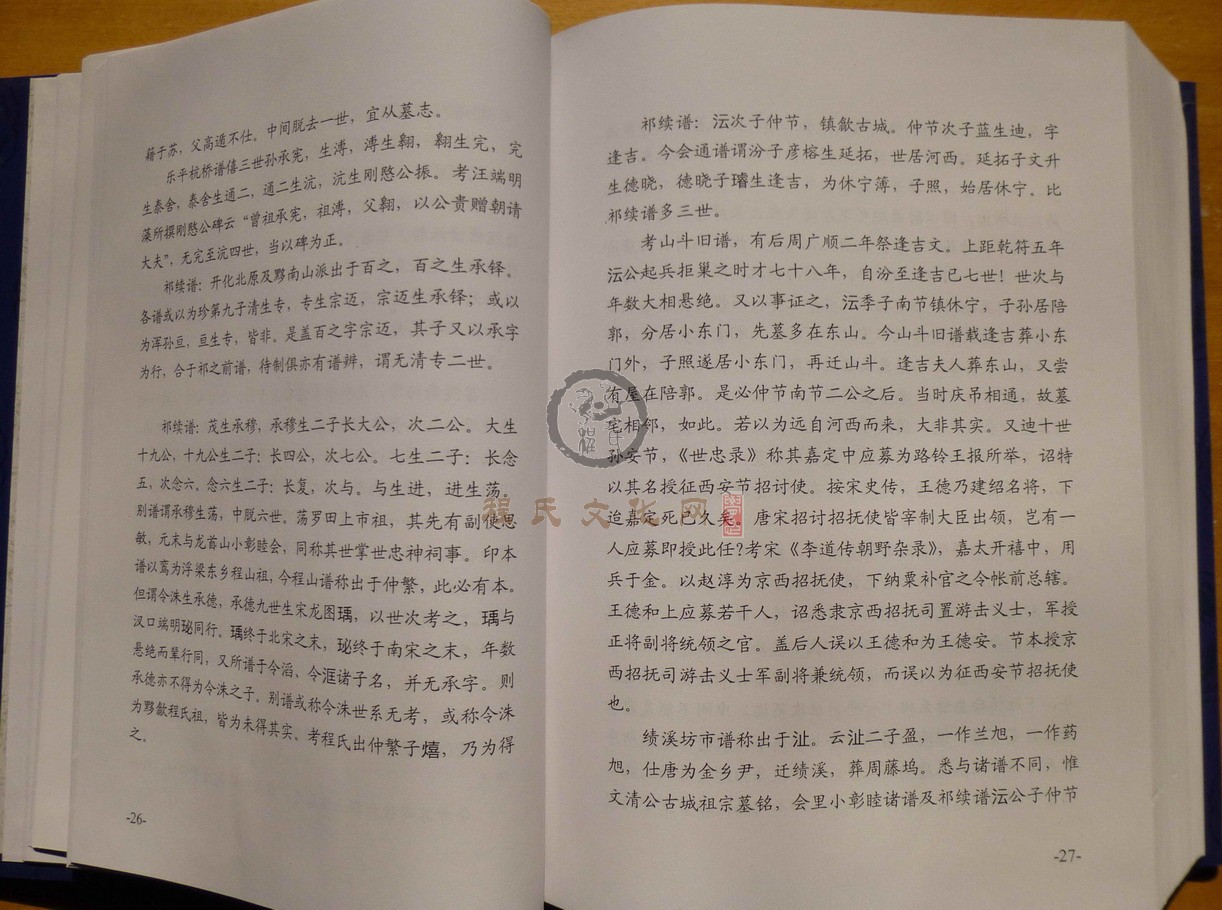 籍于苏，父高遁不仕。中间脱去一世，宜从墓志。
乐平杭桥谱僖三世孙承宪，生溥，溥生翱，翱生完，完
生泰舍，泰舍生通二，通二生沆，沆生刚愍公振。考汪端明
藻所撰刚愍公碑云“曾祖承宪，祖溥，父翱，以公贵赠朝请
大夫”，无完至沆四世，当以碑为正。
祁续谱：开化北原及黟南山派出于百之，百之生承铎。
各谱或以为珍第九子清生专，专生宗迈，宗迈生承铎；或以
为浑孙亘，亘生专，皆非。是盖百之字宗迈，其子又以承字
为行，合于祁之前谱，待制俱亦有谱辨，谓无清专二世。
祁续谱：茂生承穆，承穆生二子长大公，次二公。大生
十九公，十九公生二子：长四公，次七公。七生二子：长念
五，次念六。念六生二子：长复，次与。与生进，进生荡。
别谱谓承穆生荡，中脱六世。荡罗田上市祖，其先有副使思
敏，元末与龙首山小彰睦会，同称其世掌世忠神祠事。印本
谱以鸾为浮梁东乡程山祖，今程山谱称出于仲繁，此必有本。
但谓令洙生承德，承德九世生宋龙图瑀，以世次考之，瑀与
汊口端明珌同行。瑀终于北宋之末，珌终于南宋之末，年数
悬绝而辈行同，又所谱于令滔、令洭诸子名，并无承字。则
承德亦不得为令洙之子。别谱或称令洙世系无考，或称令洙
为黟歙程氏祖，皆为未得其实。考程氏出仲繁子熺，乃为得
之。
-26-
祁续谱：沄次子仲节，镇歙古城。仲节次子蓝生迪，字
逢吉。今会通谱谓汾子彦榕生延拓，世居河西。延拓子文升
生德晓，德晓子璿生逢吉，为休宁簿，子照，始居休宁。比
祁续谱多三世。
考山斗旧谱，有后周广顺二年祭逢吉文。上距乾符五年
沄公起兵拒巢之时才七十八年，自汾至逢吉已七世！世次与
年数大相悬绝。又以事证之，沄季子南节镇休宁，子孙居陪
郭，分居小东门，先墓多在东山。今山斗旧谱载逢吉葬小东
门外，子照遂居小东门，再迁山斗。逢吉夫人葬东山，又尝
有屋在陪郭。是必仲节南节二公之后。当时庆吊相通，故墓
宅相邻，如此。若以为远自河西而来，大非其实。又迪十世
孙安节，《世忠录》称其嘉定中应募为路铃王报所举，诏特
以其名授征西安节招讨使。按宋史传，王德乃建绍名将，下
迨嘉定死已久矣。唐宋招讨招抚使皆宰制大臣出领，岂有一
人应募即授此任?考宋《李道传朝野杂录》，嘉太开禧中，用
兵于金。以赵淳为京西招抚使，下纳粟补官之令帐前总辖。
王德和上应募若干人，诏悉隶京西招抚司置游击义士，军授
正将副将统领之官。盖后人误以王德和为王德安。节本授京
西招抚司游击义士军副将兼统领，而误以为征西安节招抚使
也。
绩溪坊市谱称出于沚。云沚二子盈，一作兰旭，一作药
旭，仕唐为金乡尹，迁绩溪，葬周藤坞。悉与诸谱不同，惟
文清公古城祖宗墓铭，会里小彰睦诸谱及祁续谱沄公子仲节
-27-
程氏文化网